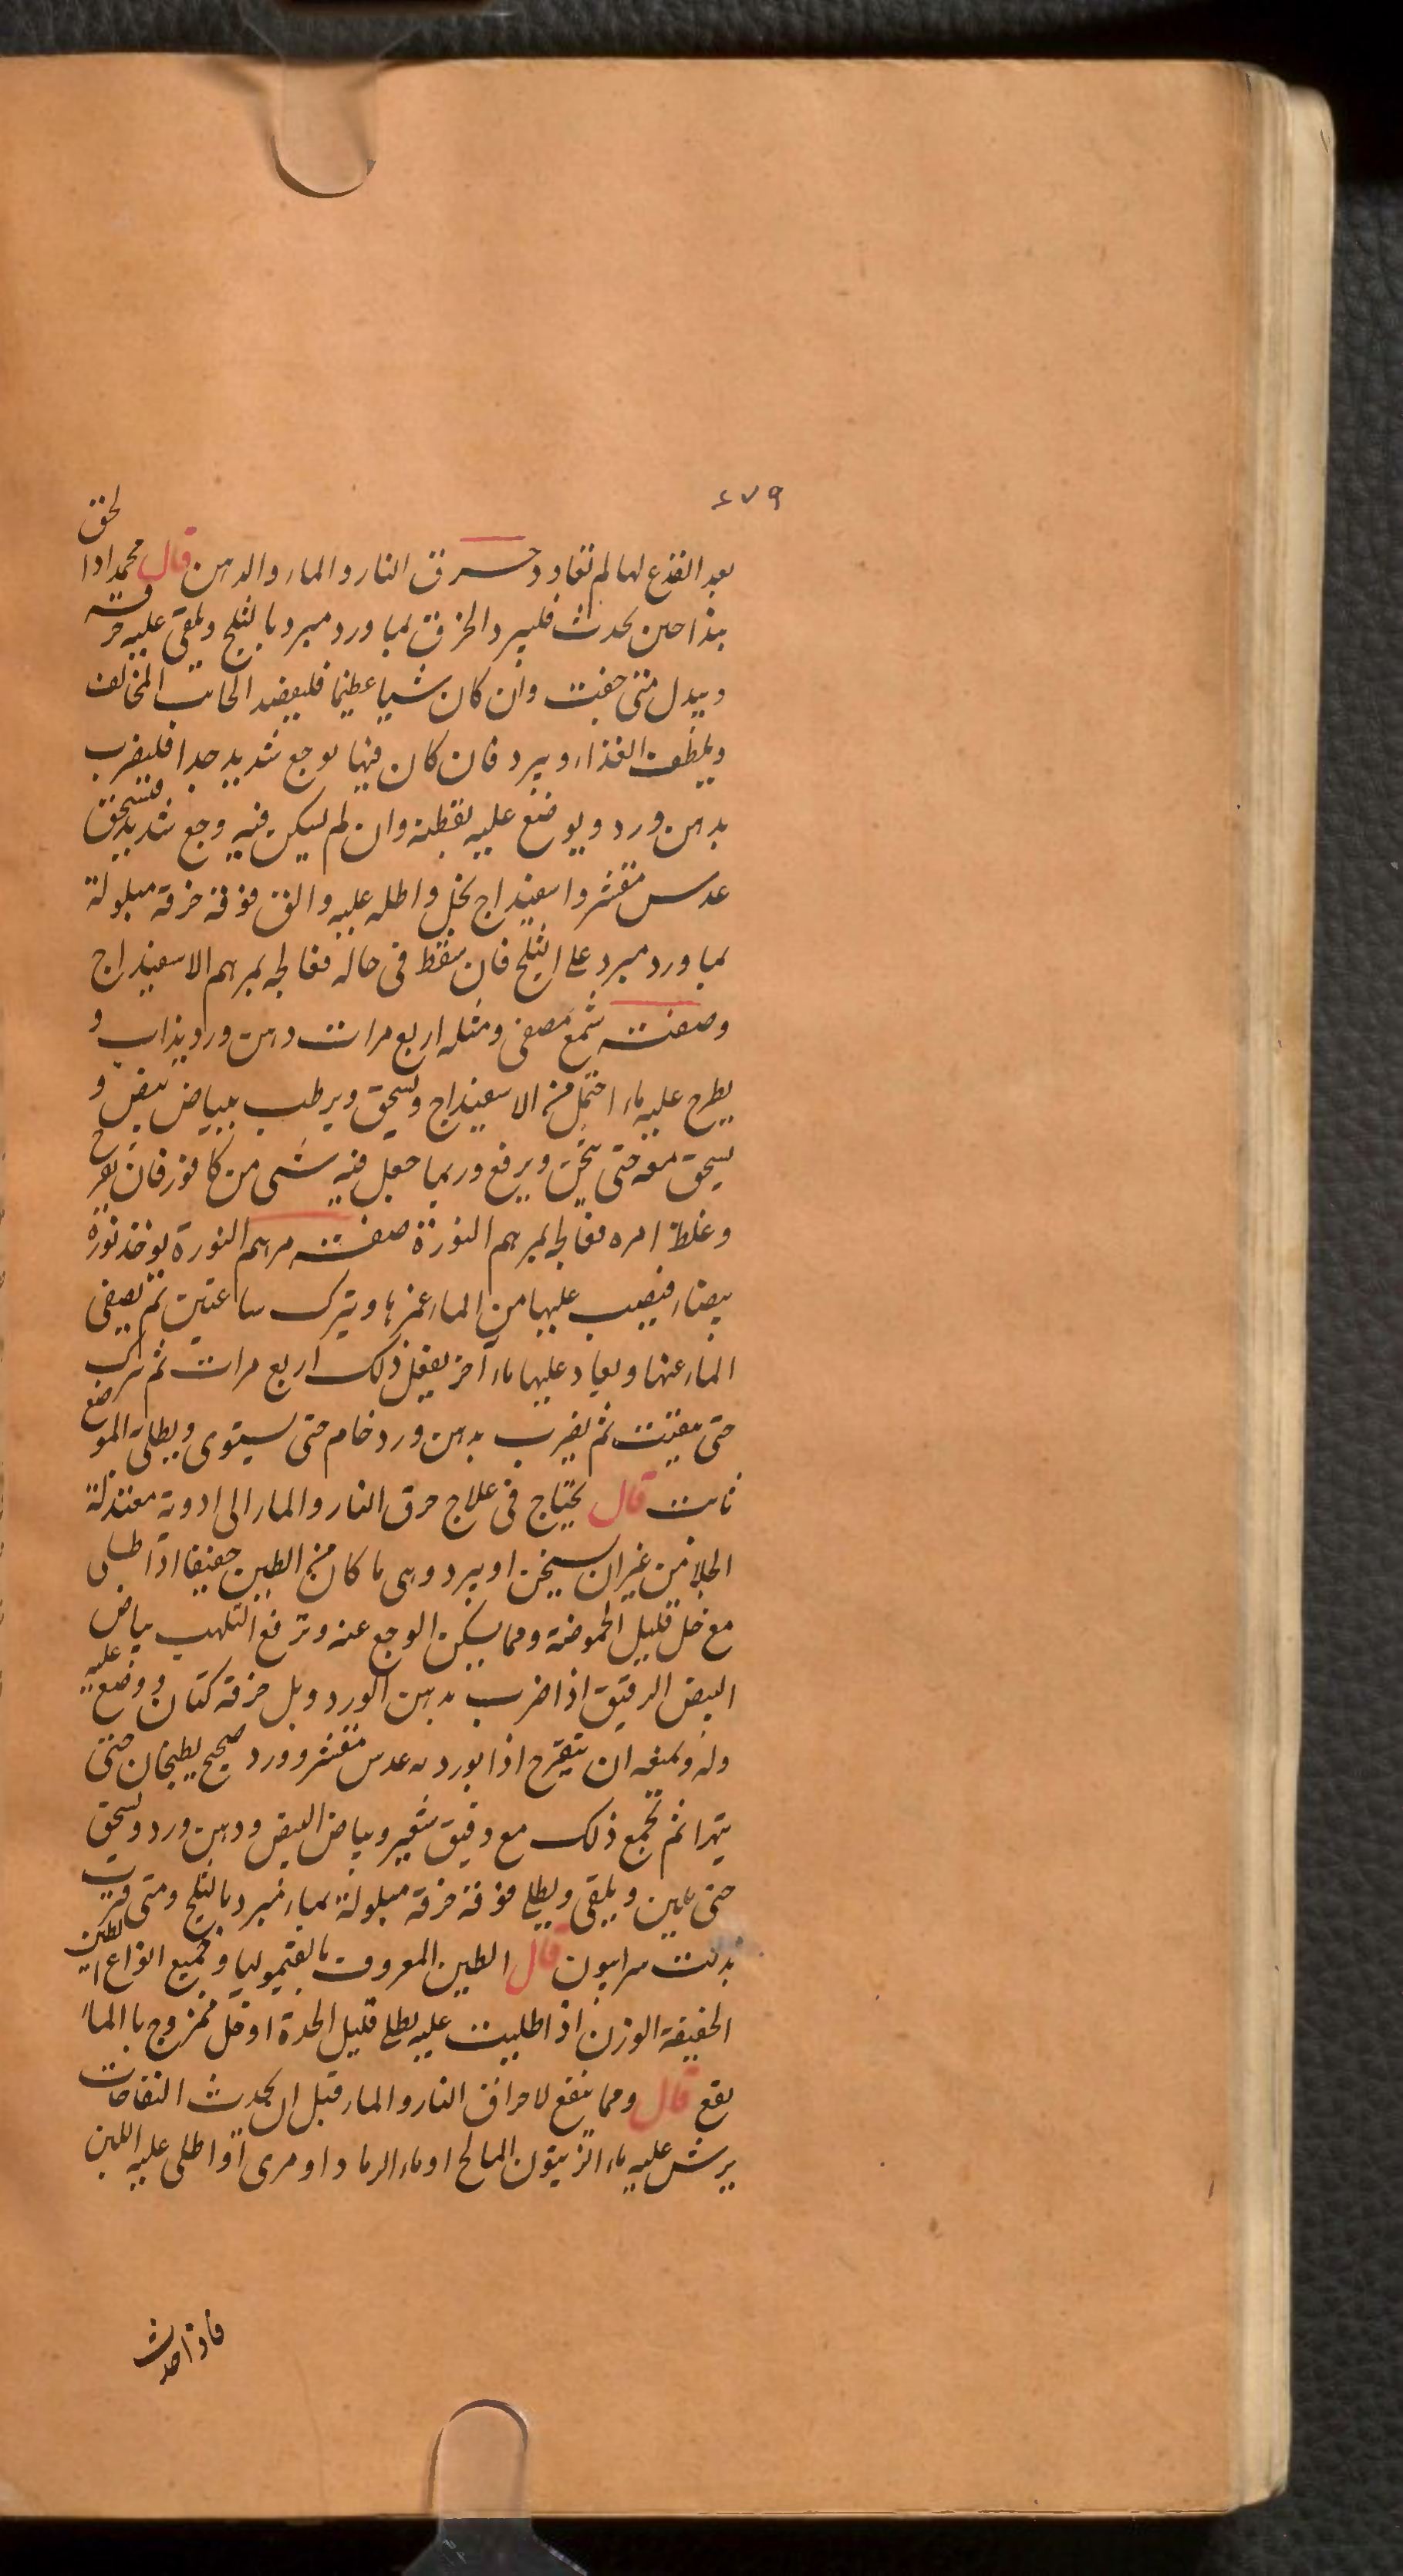 ٤٧٩
بعد القذع لها لم تعاود حرق النار والماء والدهن قال محمد اذا لحق
هذا حين يحدث فليبرد الحرق بماورد مبرد بالثلج ويلقى عليه خرقة
ويبدل متى جفت وان كان شيا عظيما فليفصد الجانب المخالف
ويلطف الغذاء ويبرد فان كان فيها يوجع شديد جدا فليضرب
بدهن ورد ويوضع عليه بقطنة وان لم يكن فيه وجع شديد فسحق
عدس مقشر واسفيداج بخل واطله عليه والق فوقه خرقة مبلولة
بماورد مبرد على الثلج فان سقط فى حاله فعالجه بمرهم الاسفيداج
وصفته شمع مصفى ومثله اربع مرات دهن ورد يذاب و
يطرح عليه ماء احتمل من الاسفيداج ويسحق ويرطب ببياض بيض و
يسحق معه حتى يثخن ويرفع وربما جعل فيه شى من كافور فان تقرح
وغلظ امره فعالجه بمرهم النورة صفت مرهم النورة يوخذ نورة
بيضاء فيصب عليها من الماء غمرها ويترك ساعتين ثم يصفى
الماء عنها ويعاد عليها ماء آخر يفعل ذلك اربع مرات ثم تترك
حتى ثم يضرب بدهن ورد خام حتى يستوى ويطلى الموضع
ثابت قال يحتاج فى علاج حرق النار والماء الى ادوية معتدلة
الجلا من غير ان يسخن او يبرد وهى ما كان من الطين خفيفا اذا طلى
مع خل قليل الحموضة ومما يسكن الوجع عنه وترفع التلهب بياض
البيض الرقيق اذا ضرب بدهن الورد وبل خرقة كتان ووضع عليه
وله ويمنعه ان يتقرح اذا بورد به عدس مقشر وورد صحيح يطبخان حتى
يتهرا ثم تجمع ذلك مع دقيق شعير وبياض البيض ودهن ورد ويسحق
حتى يلين ويلقى ويطلى فوقه خرقة مبلولة بماء مبرد بالثلج ومتى فترت
بدلت سرابيون قال الطين المعروف بالقيموليا وجميع انواع الطين
الخفيفة الوزن اذا طليت عليه بطلى قليل الحدة او خل ممزوج بالماء
يقع قال ومما ينفع لاحراق النار والماء قبل ان يحدث النفاخات
يرش عليه ماء الزيتون المالح او ماء الرماد او مرى او اطلى عليه اللبن
فاذا حدث